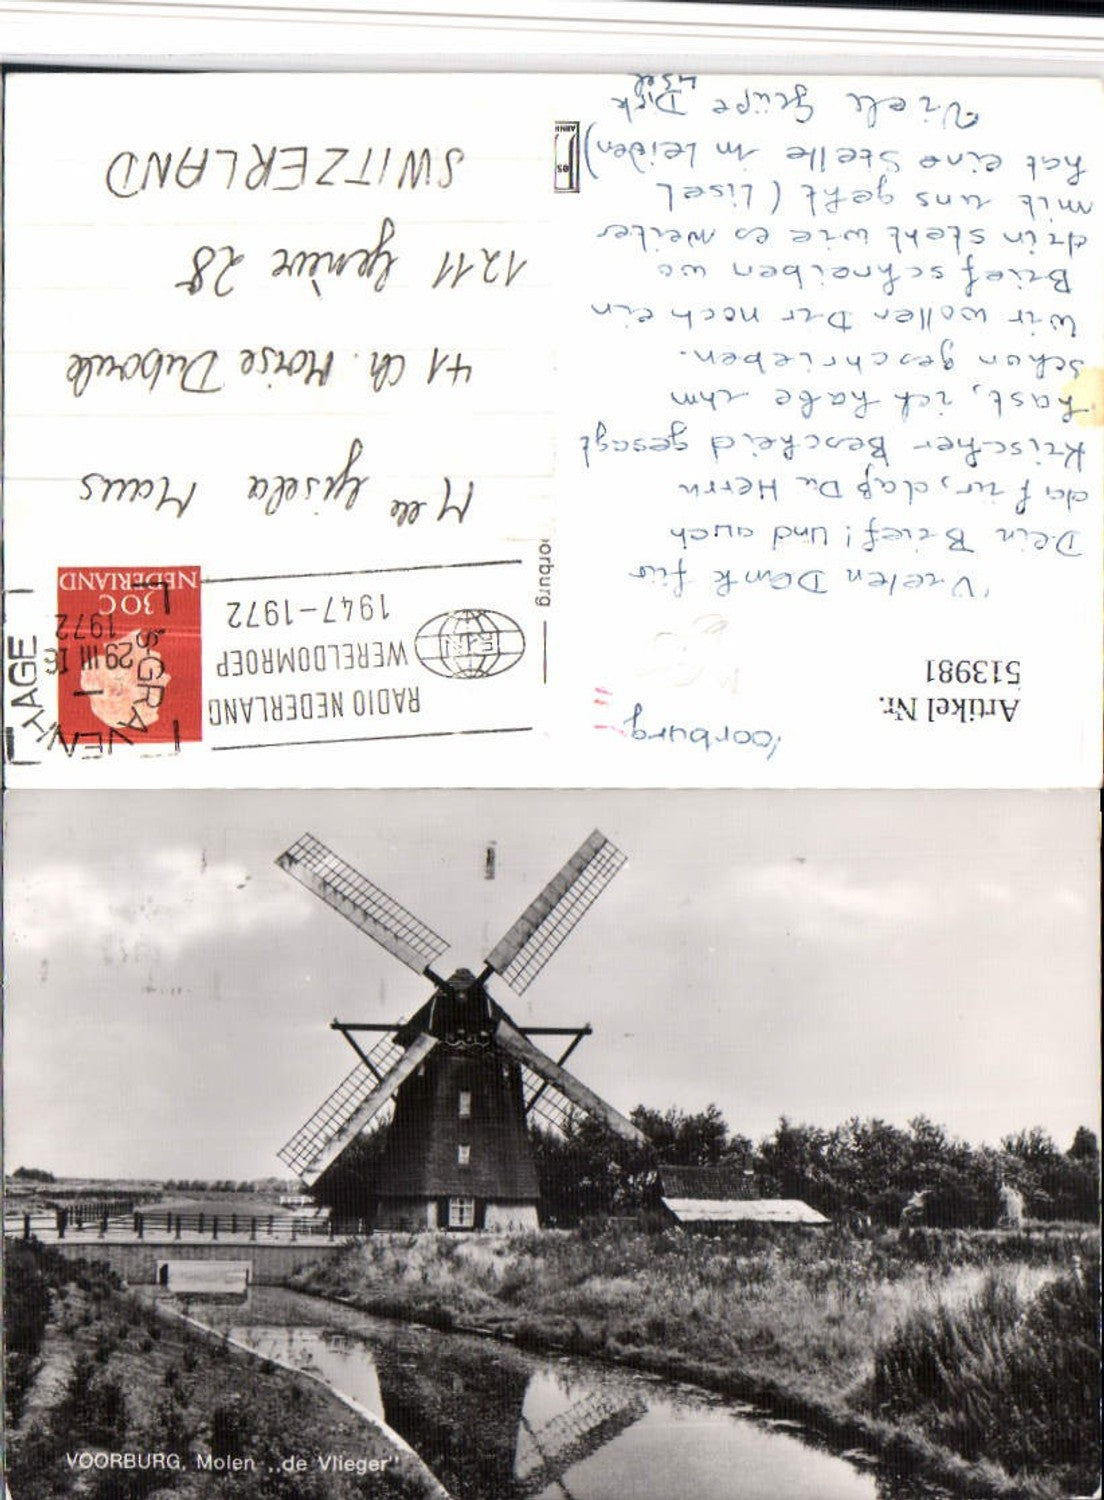 Artikel Nr.
513981
Voorburg
Vielen Dank für
Dein Brief! Und auch
dafür, daß Du Herrn
Krischer Bescheid gesagt
hast, ich habe ihm
schon geschrieben.
Wir wollen Dir noch ein
Brief schreiben wo
drin steht wie es weiter
mit uns geht (Lisel
hat eine Stelle in Leiden)
Viele Grüße Dirk
Lisel
orburg
RADIO NEDERLAND
WERELDOMROEP
1947-1972
'S GRAVENHAGE
29 III 16
1972
30 C
NEDERLAND
Mlle Gisela Maus
41 Ch. Moïse Duboule
1211 Genève 28
SWITZERLAND
VOORBURG, Molen „de Vlieger"